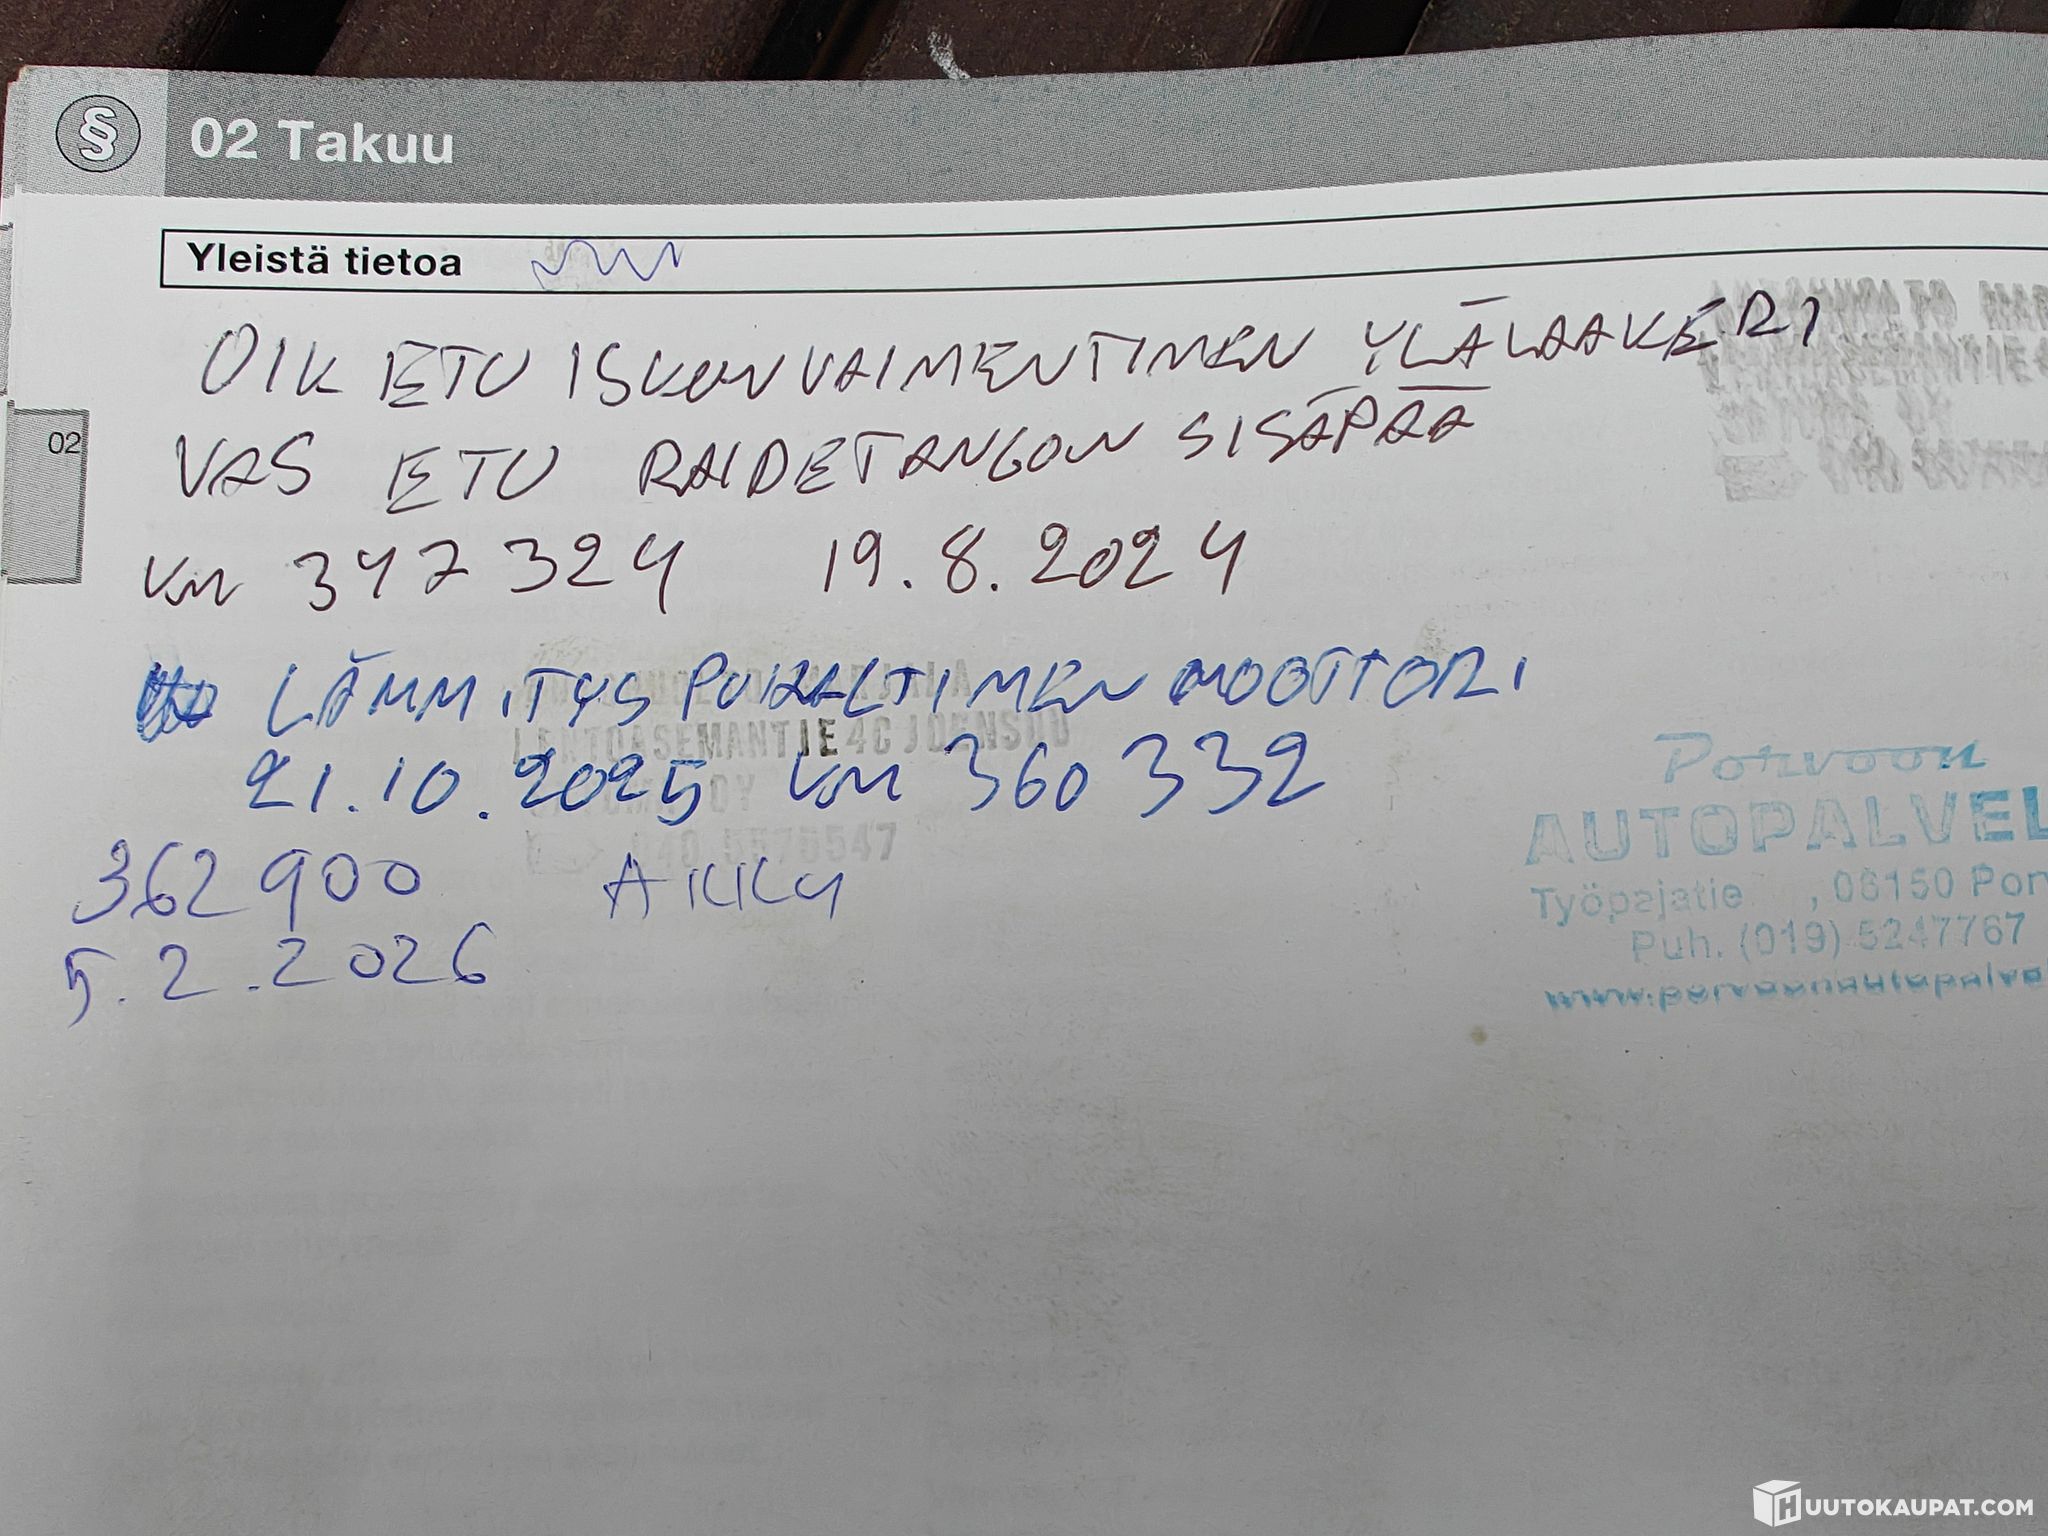 § 02 Takuu
Yleistä tietoa
OIK ETU ISKUNVAIMENTIMEN YLÄLAAKERI
VAS ETU RAIDETANGON SISÄPÄÄ
02
km 347324 19.8.2024
LÄMMITYSPUHALTIMEN MOOTTORI
LENTOASEMANTIE 4C JOENSUU
21.10.2025 km 360332
OY
362900 AKKU
5.2.2026
Porvoon
AUTOPALVEL
Työpajatie , 06150 Por
Puh. (019) 5247767
www.porvoonautopalve
HUUTOKAUPAT.COM